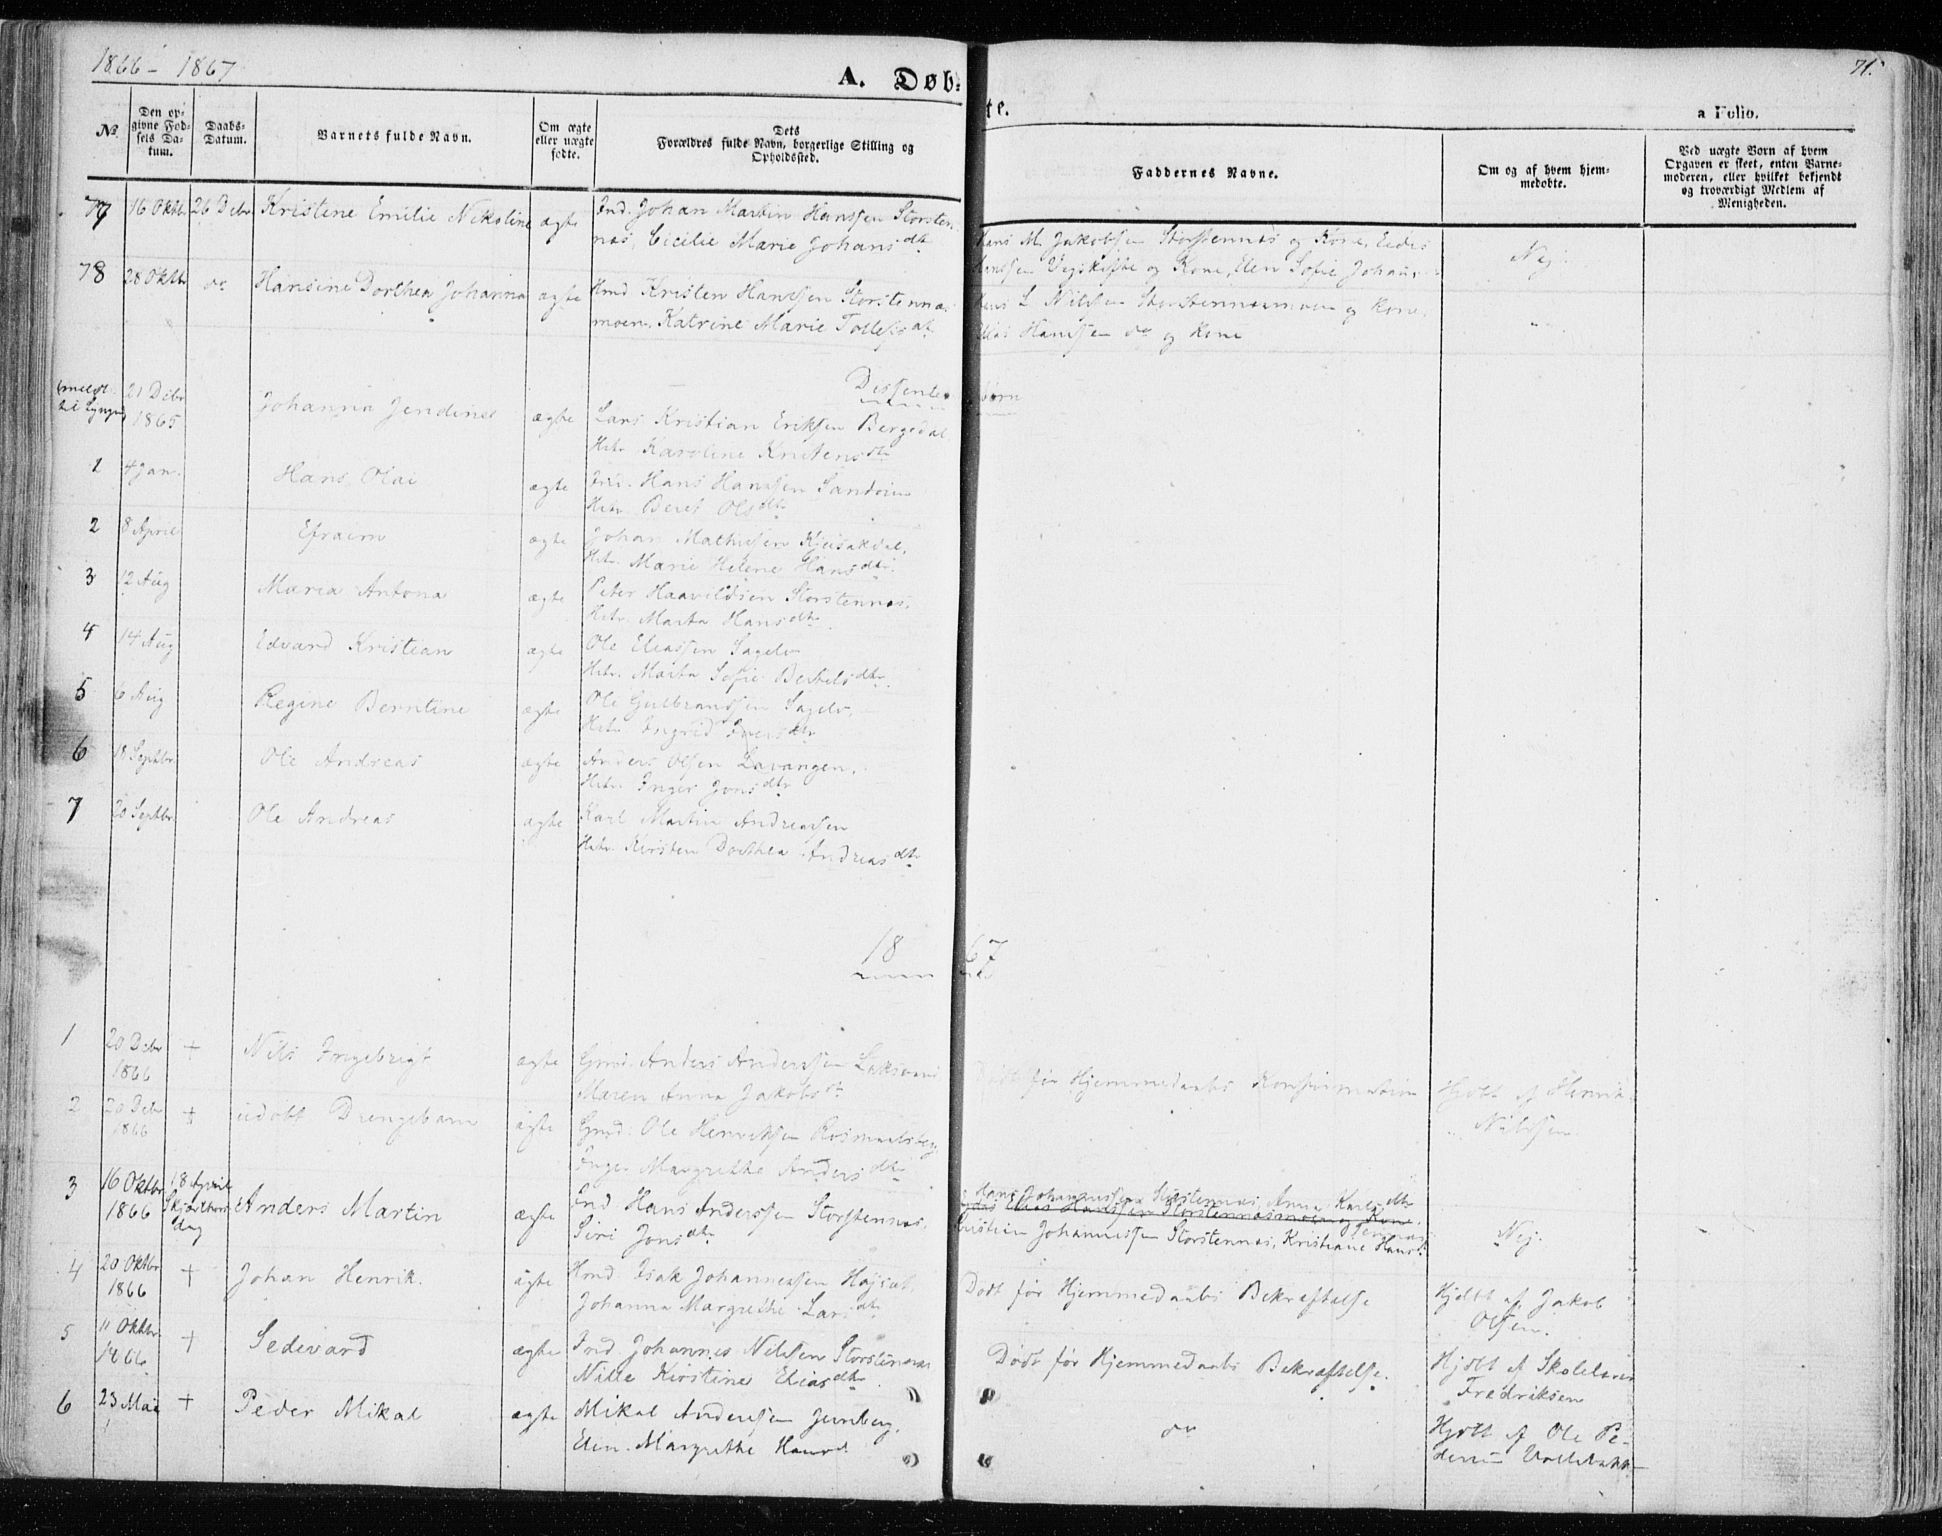 1866 - 1867
A. Døb-
te.
71.
a Folio.
No.
Den op-
givne Fød-
sels Da-
tum.
Daabs-
Datum.
Barnets fulde Navn.
Om ægte
eller uægte
fødte.
Dets
Forældres fulde Navn, borgerlige Stilling og
Opholdssted.
Faddernes Navne.
Om og af hvem hjem-
medøbte.
Ved uægte Børn af hvem
Opgaven er skeet, enten Barne-
moderen, eller hvilket bekjendt
og troværdigt Medlem af
Menigheden.
77 16 Oktbr 26 Debr Kristine Emilie Nikoline ægte Ind. Johan Martin Hanssen Storsten-
næs, Cicilie Marie Johansdtr
Hans M. Jakobsen Storstennæs og Kone,
Hanssen og Kone, Elen Sofie Johans
Nej.
78 28 Oktbr do Hansine Dorthea Johanna ægte Hmd Kristen Hanssen Storstennæs-
moen, Katrine Marie Tollefsdtr
Hans L. Nilsen Storstennæsmoen og Kone,
Elias Hanssen do og Kone
Dissenter børn
(meldt til Lyngen) 21 Debr
1865 Johanna Jendine ægte Lars Kristian Eriksen Bergedal,
Hstr. Karoline Knutensdtr
1 4 Jan. Hans Olai ægte Hans Hanssen Sandøien
Hstr. Beret Olsdtr
2 8 April Efraim ægte Johan Mathisen
Hstr. Marie Helene Hansdtr.
3 12 Aug Maria Antona ægte Peter Haavildsen Storstennæs,
Hstr. Marta Hansdtr
4 14 Aug Edvard Kristian ægte Ole Eliassen Sagelv
Hstr. Marta Sofie Bertelsdtr.
5 6 Aug Regine Berntine ægte Ole Gulbrandsen Sagelv,
Hstr. Ingrid Iversdtr
6 18 Septbr. Ole Andreas ægte Anders Olsen Lavangen,
Hstr. Inger Jonsdtr
7 20 Septbr. Ole Andreas ægte Karl Martin Andreassen
Hstr. Kirsten Dorthea Andreasdtr
1867
1 20 Debr
1866 + Nils Ingebrigt ægte Gmd. Anders Anderssen Laksvand
Maren Anna Jakobsdtr
Dødt før Hjemmedaabs Konfirmation
Hjdbt af Henrik
Nilsen.
2 20 Debr
1866 + udøbt Drengebarn ægte Gmd. Ole Henriksen
Inger Margrethe Andersdtr
3 16 Oktbr
1866 18 April
Skjærthors
dag Anders Martin ægte Ind. Hans Anderssen Storstennæs,
Siri Jonsdtr
Hans Johannessen Storstennæs, Anna Karlsdtr
Elias Hanssen Storstennæsmoen og Kone.
Kristian Johannessen Storstennæs, Kristiane Hansd.
Nej.
4 20 Oktbr
1866 + Johan Henrik. ægte Hmd. Isak Johannessen
Johanna Margrethe Larsdtr.
Dødt før Hjemmedaabs Bekræftelse
Hjdbt af Jakob
Olsen.
5 11 Oktbr
1866 + Sedevard ægte Ind. Johannes Nilsen Storstennæs
Nille Kirstine Eliasdtr
Dødt før Hjemmedaabs Bekræftelse.
Hjdbt af Skolelærer
Fredriksen
6 23 Mai + Peder Mikal ægte Mikal Anderssen Jernberg,
Elen Margrethe Hansd.
do
Hjdbt af Ole Pe-
dersen